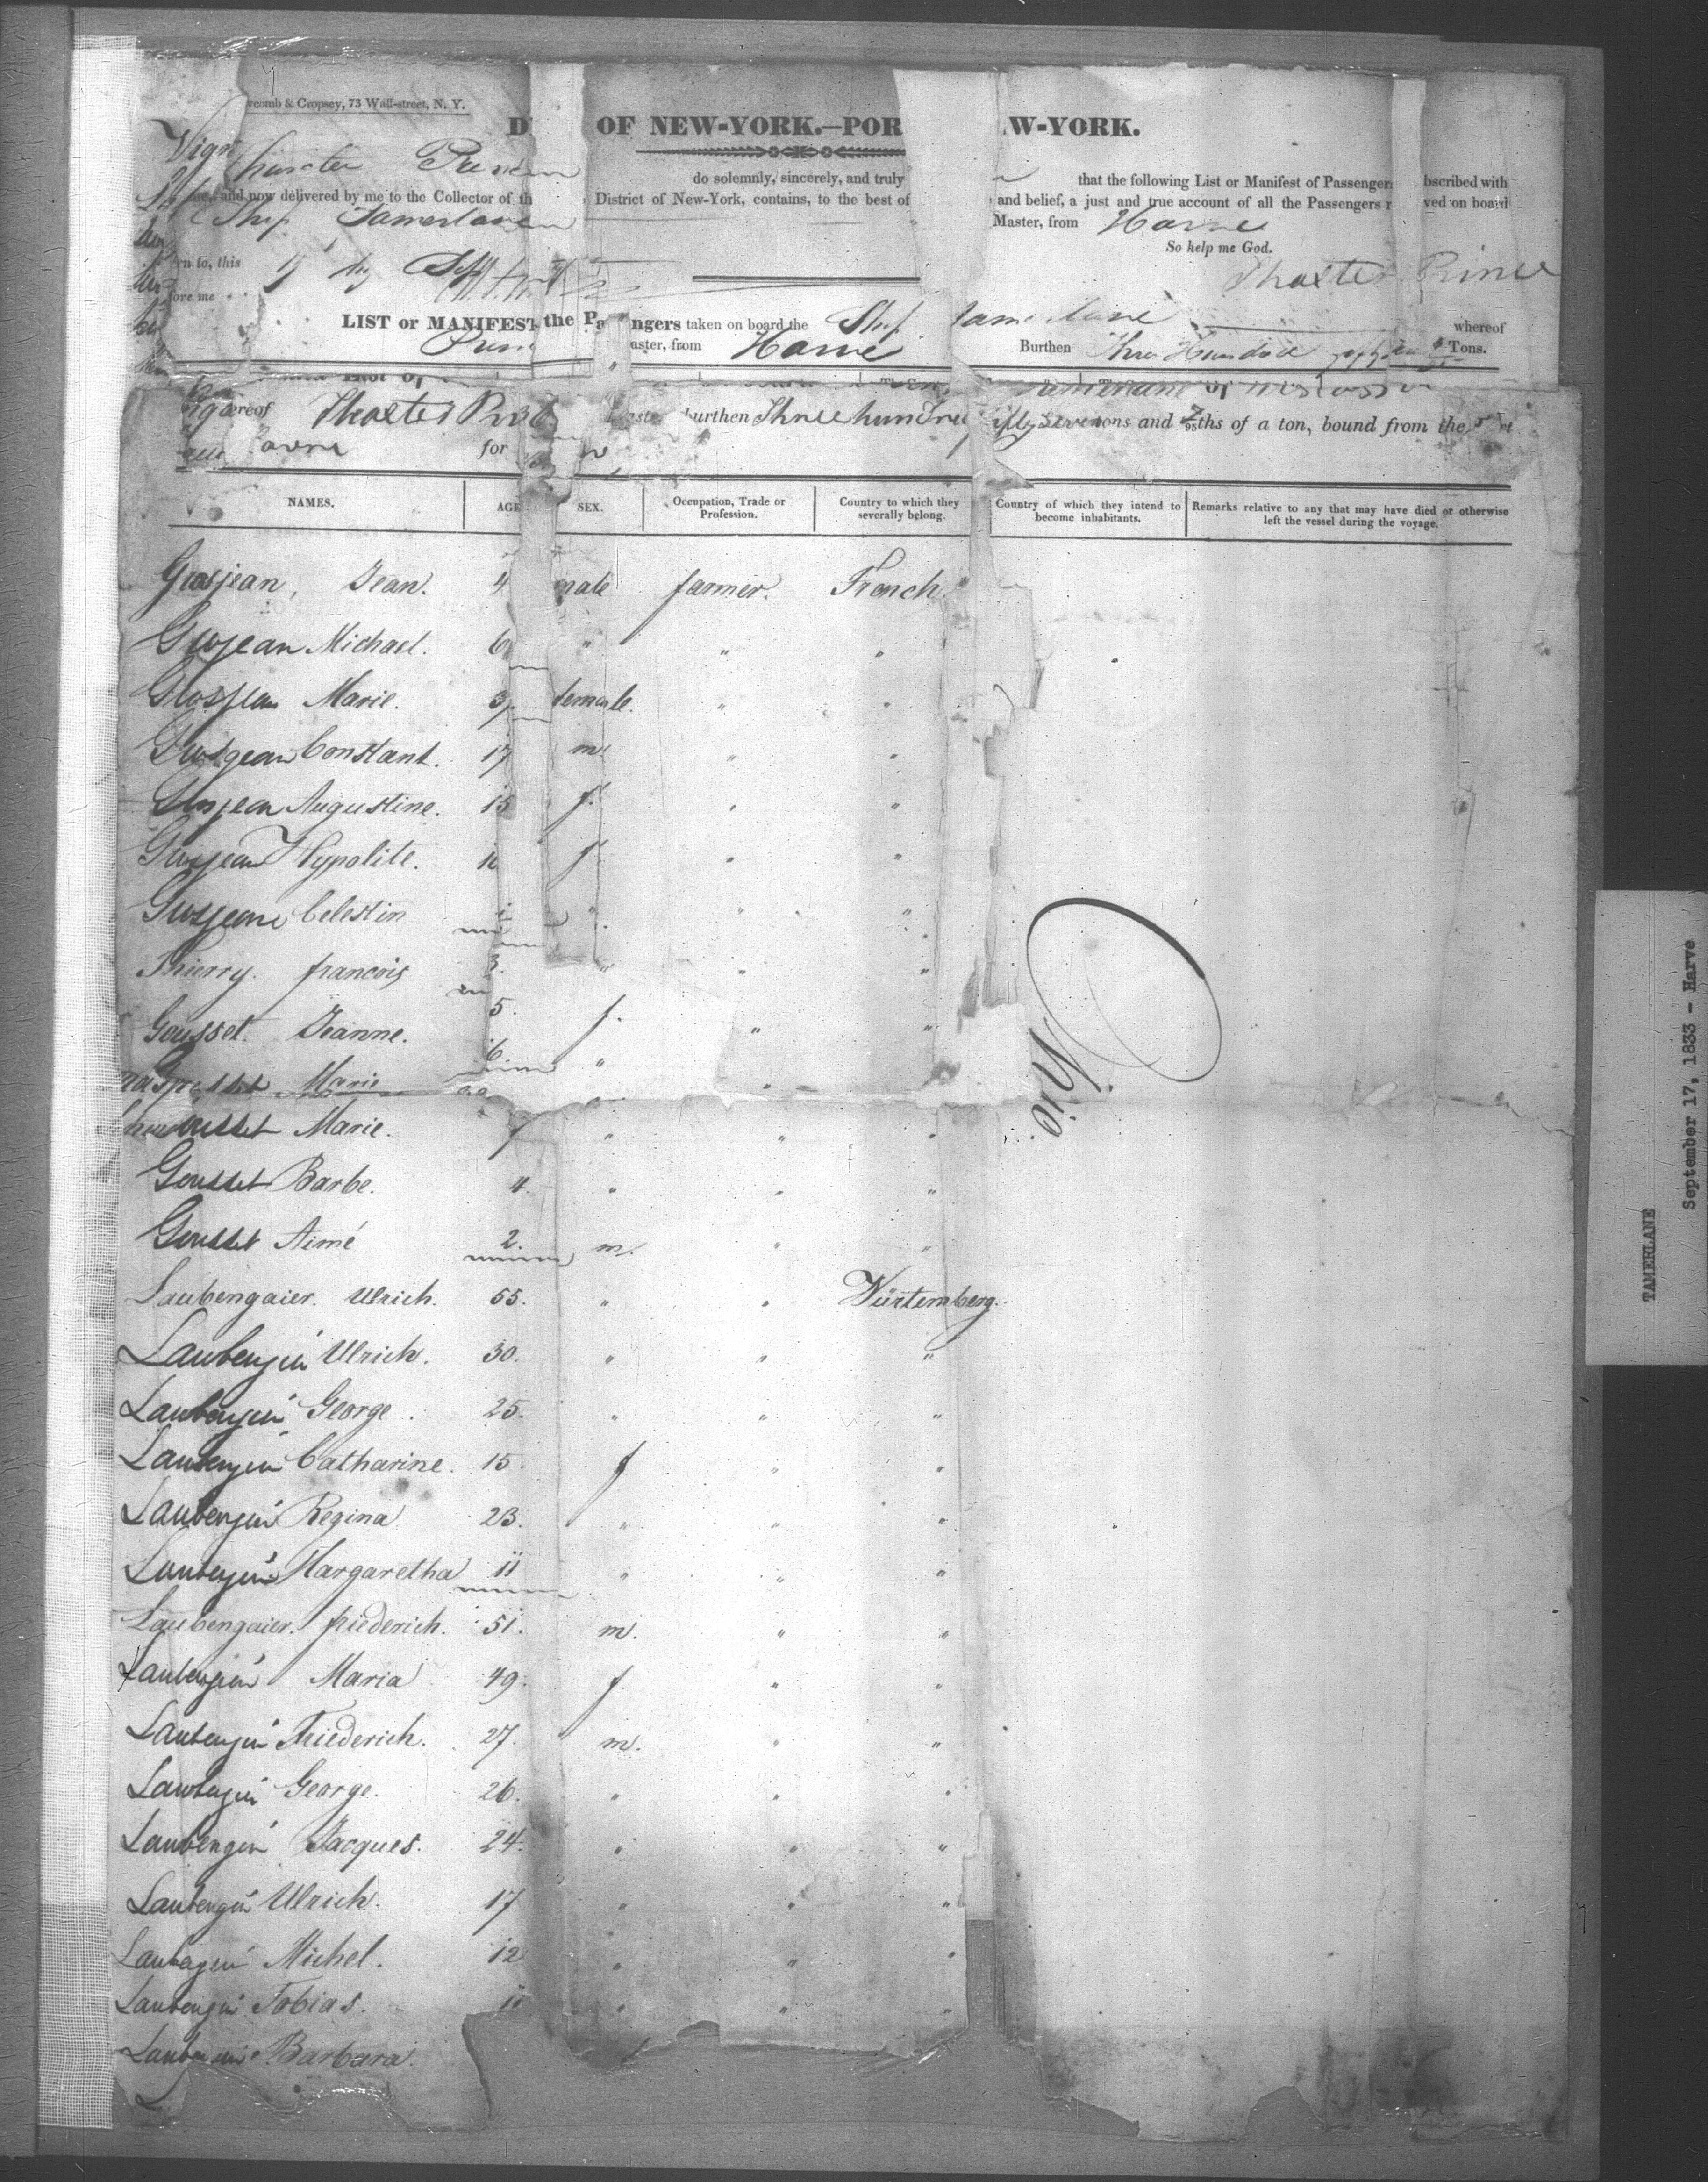 & Cropsey, 73 Wall-street, N. Y.
D OF NEW-YORK.—POR W-YORK.
do solemnly, sincerely, and truly that the following List or Manifest of Passenger bscribed with
and now delivered by me to the Collector of th District of New-York, contains, to the best of and belief, a just and true account of all the Passengers r ved on board
Ship Tamerlane Master, from Havre
So help me God.
rn to, this
fore me
Thaxter Prince
LIST or MANIFEST the Pa ngers taken on board the Ship Tamerlane whereof
aster, from Havre Burthen Three Hundred Tons.
ereof Thaxter burthen Three hundred ifty seven tons and ths of a ton, bound from the
for
NAMES. AGE SEX. Occupation, Trade or Profession. Country to which they severally belong. Country of which they intend to become inhabitants. Remarks relative to any that may have died or otherwise left the vessel during the voyage.
Grosjean, Jean. 4 male farmer. French
Grosjean Michael. 6 " " "
Grosjean Marie. 3 female. " "
Grosjean Constant. 17 m. " "
Grosjean Augustine. 15 f. " "
Grosjean Hypolite. f " "
Grosjean Celestin " " "
Thierry. francois 3. " " "
Gousset. Jeanne. 5. f. " "
Marie 6. " "
Gousset Marie. " " "
Gousset Barbe. 4. " " "
Gousset Aimé 2. m. " "
Laubengaier. Ulrich. 55. " " Würtemberg.
Laubengaier Ulrich. 30. " " "
Laubengaier George. 25. " " "
Laubengaier Catharine. 15. f " "
Laubengaier Regina 23. " " "
Laubengaier Margaretha 11 " " "
Laubengaier. friederich. 51. m. " "
Laubengaier Maria 49. f " "
Laubengaier Friederich. 27. m. " "
Laubengaier George. 26. " " "
Laubengaier Jacques. 24. " " "
Laubengaier Ulrich. 17 " " "
Laubengaier Michel. 12 " " "
Laubengaier Tobias. 11 " " "
Laubengaier Barbara.
TAMERLANE
September 17, 1833 - Harve